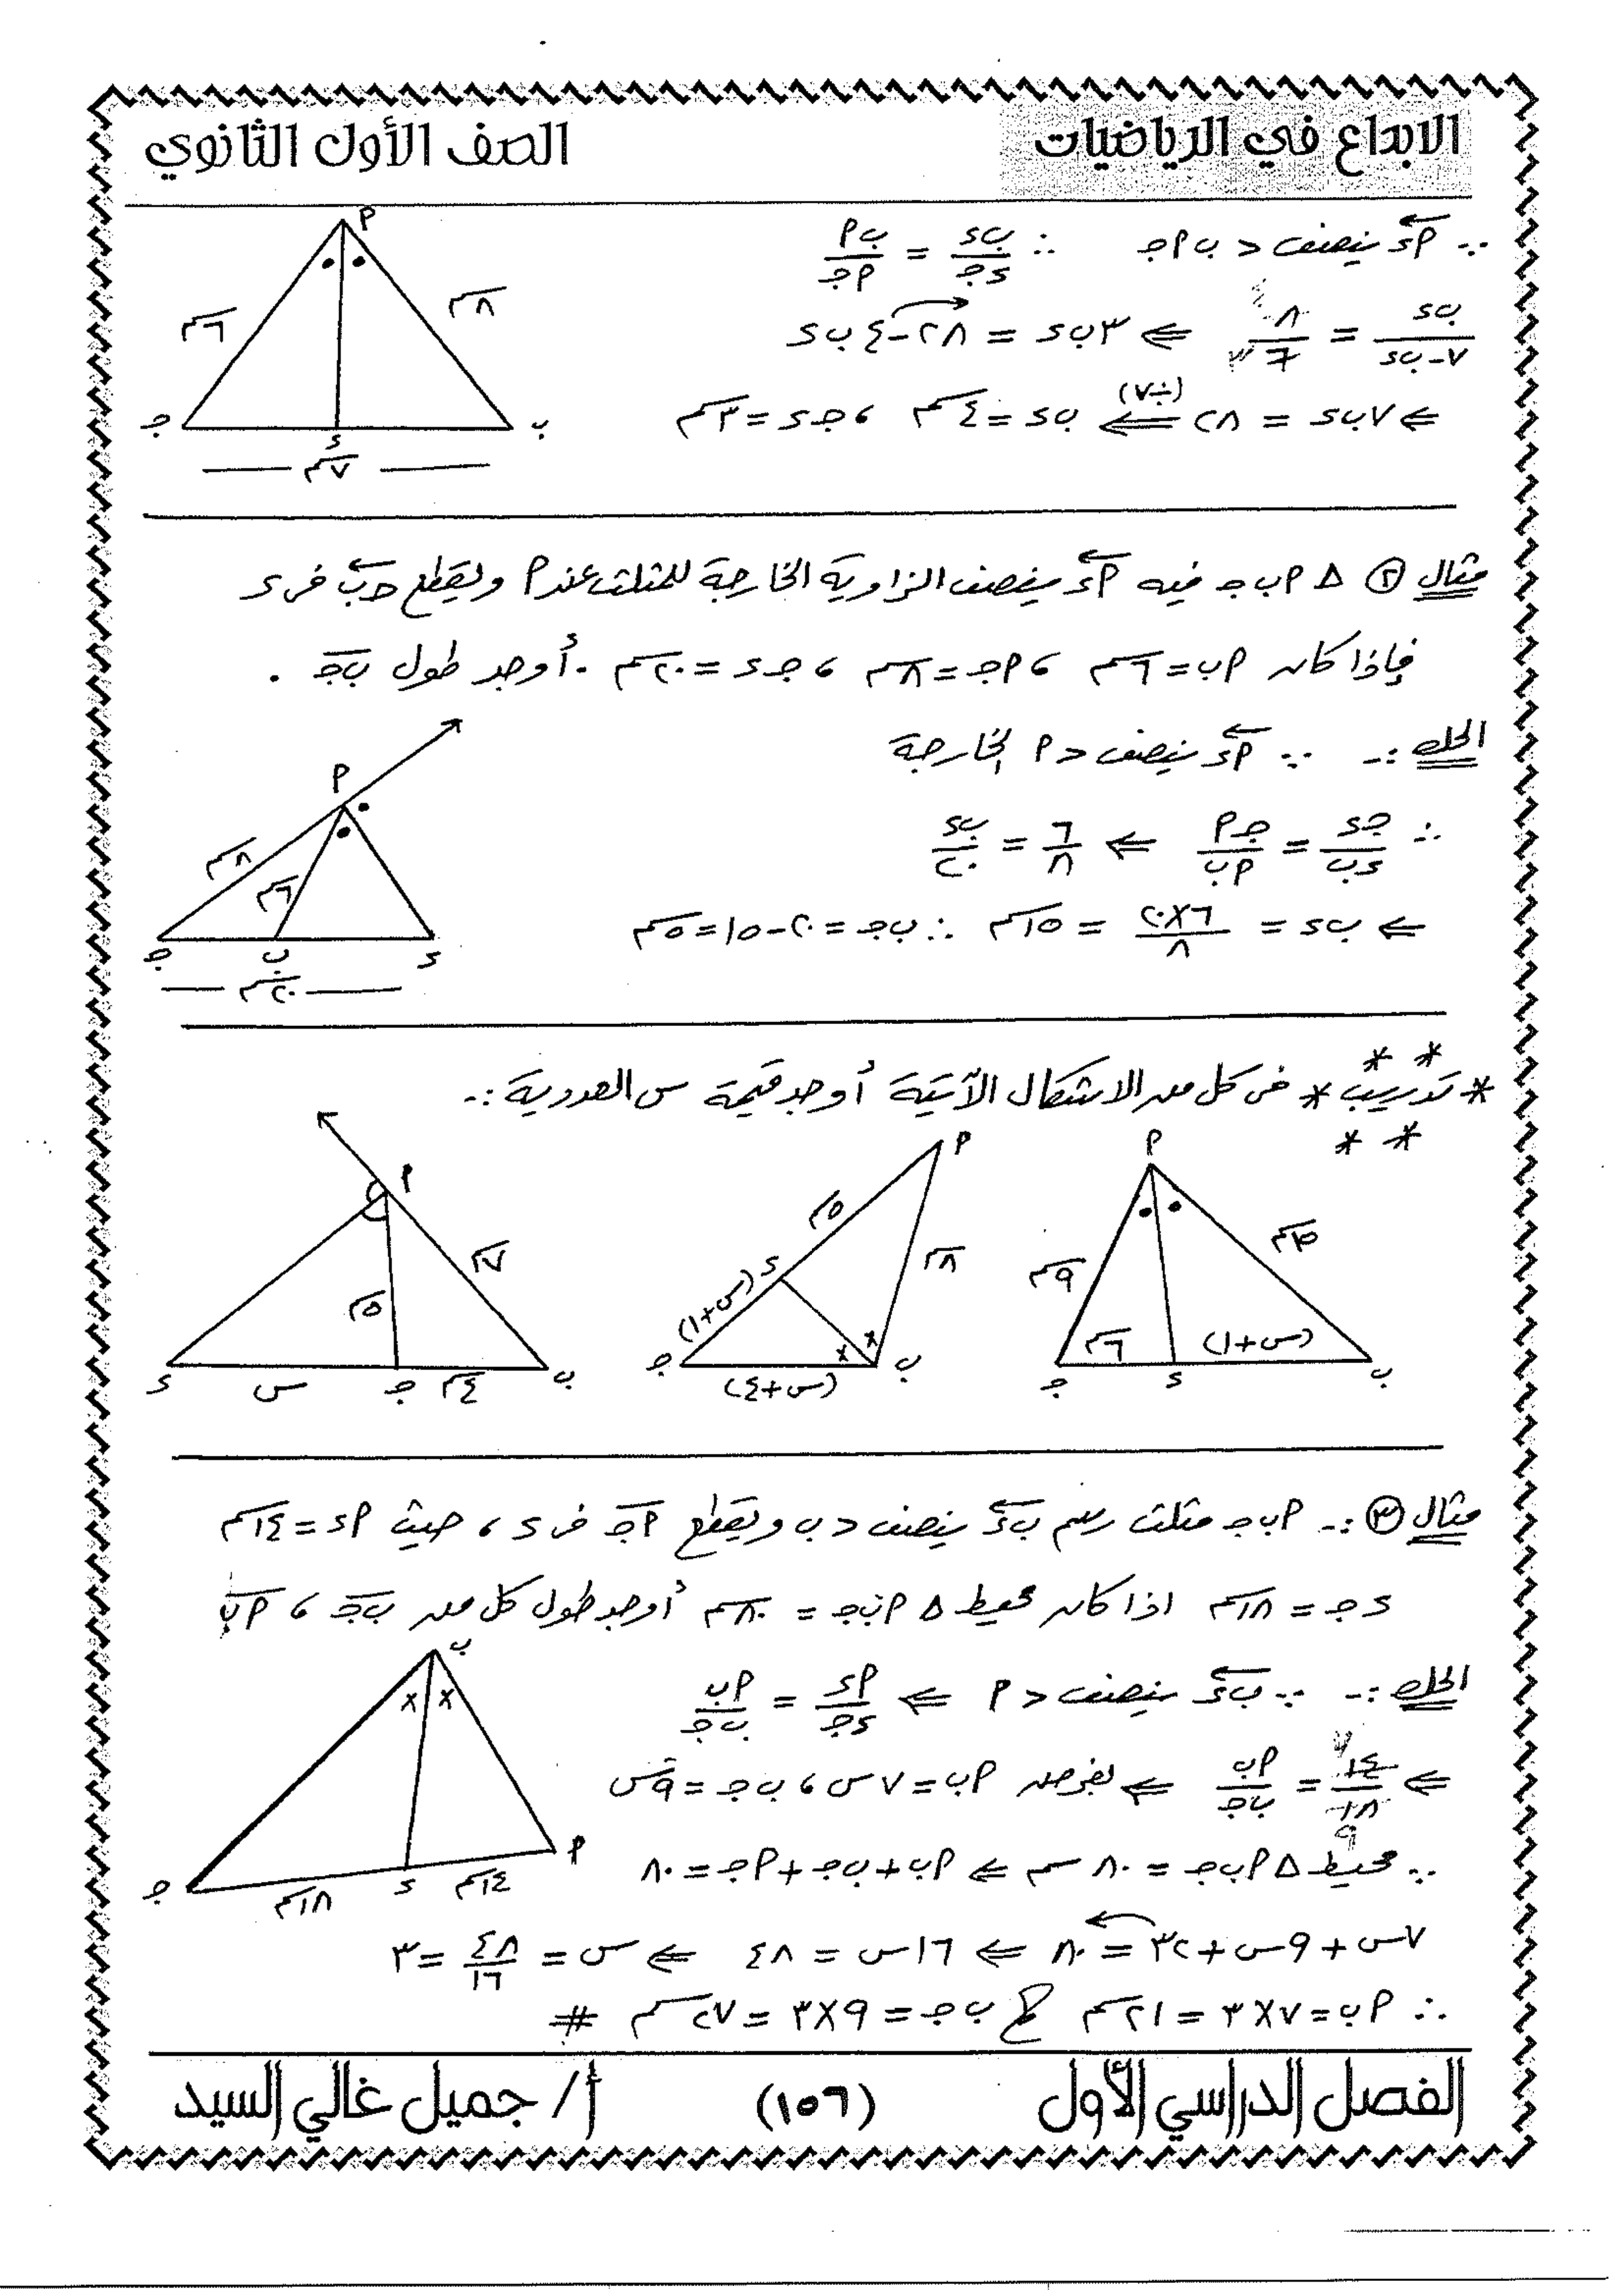 الابداع في الرياضيات
الصف الأول الثانوي
∵ أء ينصف > ب أ ج ∴ ب ء / ء ج = ب أ / أ ج
ب ء / ٧ - ب ء = ٨ / ٦ ⇐ ٣ ب ء = ٢٨ - ٤ ب ء
⇐ ٧ ب ء = ٢٨ ⇐ (÷٧) ب ء = ٤ سم ، ج ء = ٣ سم
أ
٦ سم
٨ سم
ج ء ب
٧ سم
مثال ② Δ أ ب ج فيه أء ينصف الزاوية الخارجة للمثلث عند أ ويقطع جـ ب فى ء
فإذا كان أ ب = ٦ سم ، أ ج = ٨ سم ، ج ء = ٢٠ سم . أوجد طول ب ج .
الحل :- ∵ أء ينصف > أ الخارجة
∴ ج ء / ء ب = ج أ / أ ب ⇐ ٦ / ٨ = ب ء / ٢٠
⇐ ب ء = ٦ × ٢٠ / ٨ = ١٥ سم ∴ ب ج = ٢٠ - ١٥ = ٥ سم
أ
٨ سم
٦ سم
ج ب ء
٢٠ سم
* تدريب * فى كل من الاشكال الآتية أوجد قيمة س العددية :-
أ
٩ سم
١٥ سم
٦ سم
(س+١)
ج ء ب
أ
٥ سم
٨ سم
ء
(س+١)
ج
ب
(س+٤)
أ
٧ سم
٥ سم
ء س ج ٤ سم ب
مثال ③ :- أ ب ج مثلث رسم ب ء ينصف > ب ويقطع أ ج فى ء ، حيث أ ء = ١٤ سم
ء ج = ١٨ سم اذا كان محيط Δ أ ب ج = ٨٠ سم أوجد طول كل من ب ج ، أ ب
الحل :- ∵ ب ء ينصف > أ ⇐ أ ء / ء ج = أ ب / ب ج
⇐ ١٤ / ١٨ = أ ب / ب ج ⇐ بفرض أ ب = ٧ س ، ب ج = ٩ س
∵ محيط Δ أ ب ج = ٨٠ سم ⇐ أ ب + ب ج + أ ج = ٨٠
٧ س + ٩ س + ٣٢ = ٨٠ ⇐ ١٦ س = ٤٨ ⇐ س = ٤٨ / ١٦ = ٣
∴ أ ب = ٧ × ٣ = ٢١ سم ، ب ج = ٩ × ٣ = ٢٧ سم #
ب
أ
ج ١٨ سم ء ١٤ سم
الفصل الدراسي الأول
(١٥٦)
أ/ جميل غالي السيد